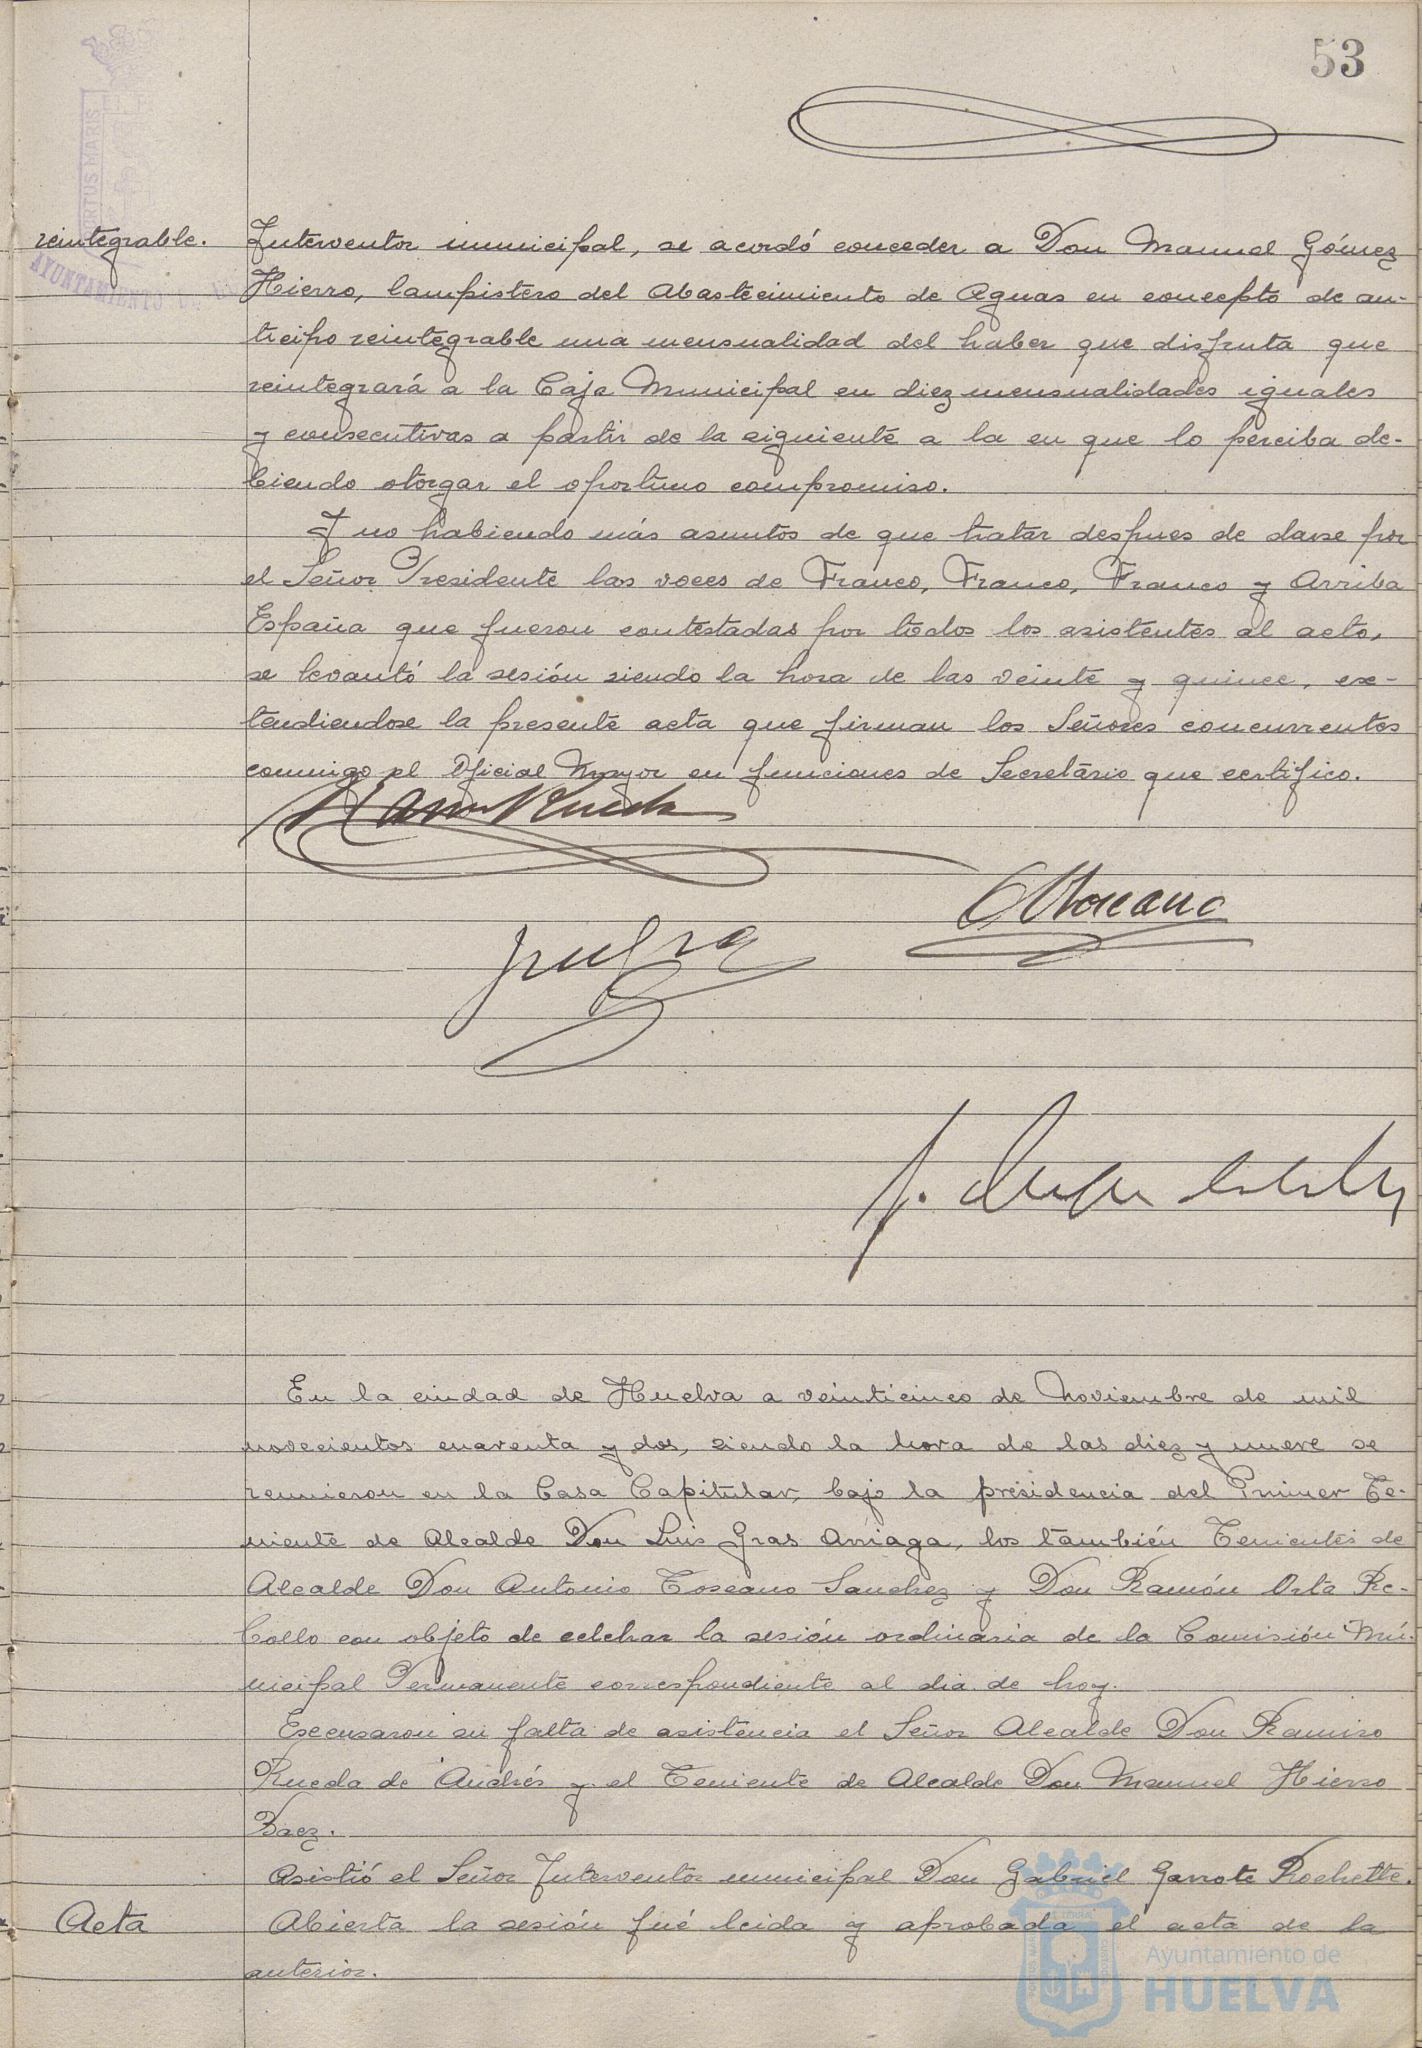 53
PORTUS MARIS
AYUNTAMIENTO DE
reintegrable.
Interventor municipal, se acordó conceder a Don Manuel Gómez
Hierro, lampistero del Abastecimiento de Aguas en concepto de an-
ticipo reintegrable una mensualidad del haber que disfruta que
reintegrará a la Caja Municipal en diez mensualidades iguales
y consecutivas a partir de la siguiente a la en que lo perciba de-
biendo otorgar el oportuno compromiso.
Y no habiendo más asuntos de que tratar despues de darse por
el Señor Presidente las voces de Franco, Franco, Franco y Arriba
España que fueron contestadas por todos los asistentes al acto,
se levantó la sesión siendo la hora de las veinte y quince, ex-
tendiendose la presente acta que firman los Señores concurrentes
conmigo el Oficial Mayor en funciones de Secretário que certifico.
Rueda
Toscano
En la ciudad de Huelva a veinticinco de Noviembre de mil
novecientos cuarenta y dos, siendo la hora de las diez y nueve se
reunieron en la Casa Capitular, bajo la presidencia del Primer Te-
niente de Alcalde Don Luis Gras Arriaga, los también Tenientes de
Alcalde Don Antonio Toscano Sanchez y Don Ramón Orta Re-
bollo con objeto de celebrar la sesión ordinaria de la Comisión Mu-
nicipal Permanente correspondiente al dia de hoy.
Excusaron su falta de asistencia el Señor Alcalde Don Ramiro
Rueda de Andrés y el Teniente de Alcalde Don Manuel Hierro
Baez.
Asistió el Señor Interventor municipal Don Gabriel Garrote Rochette.
Acta
Abierta la sesión fué leida y aprobada el acta de la
anterior.
Ayuntamiento de
HUELVA